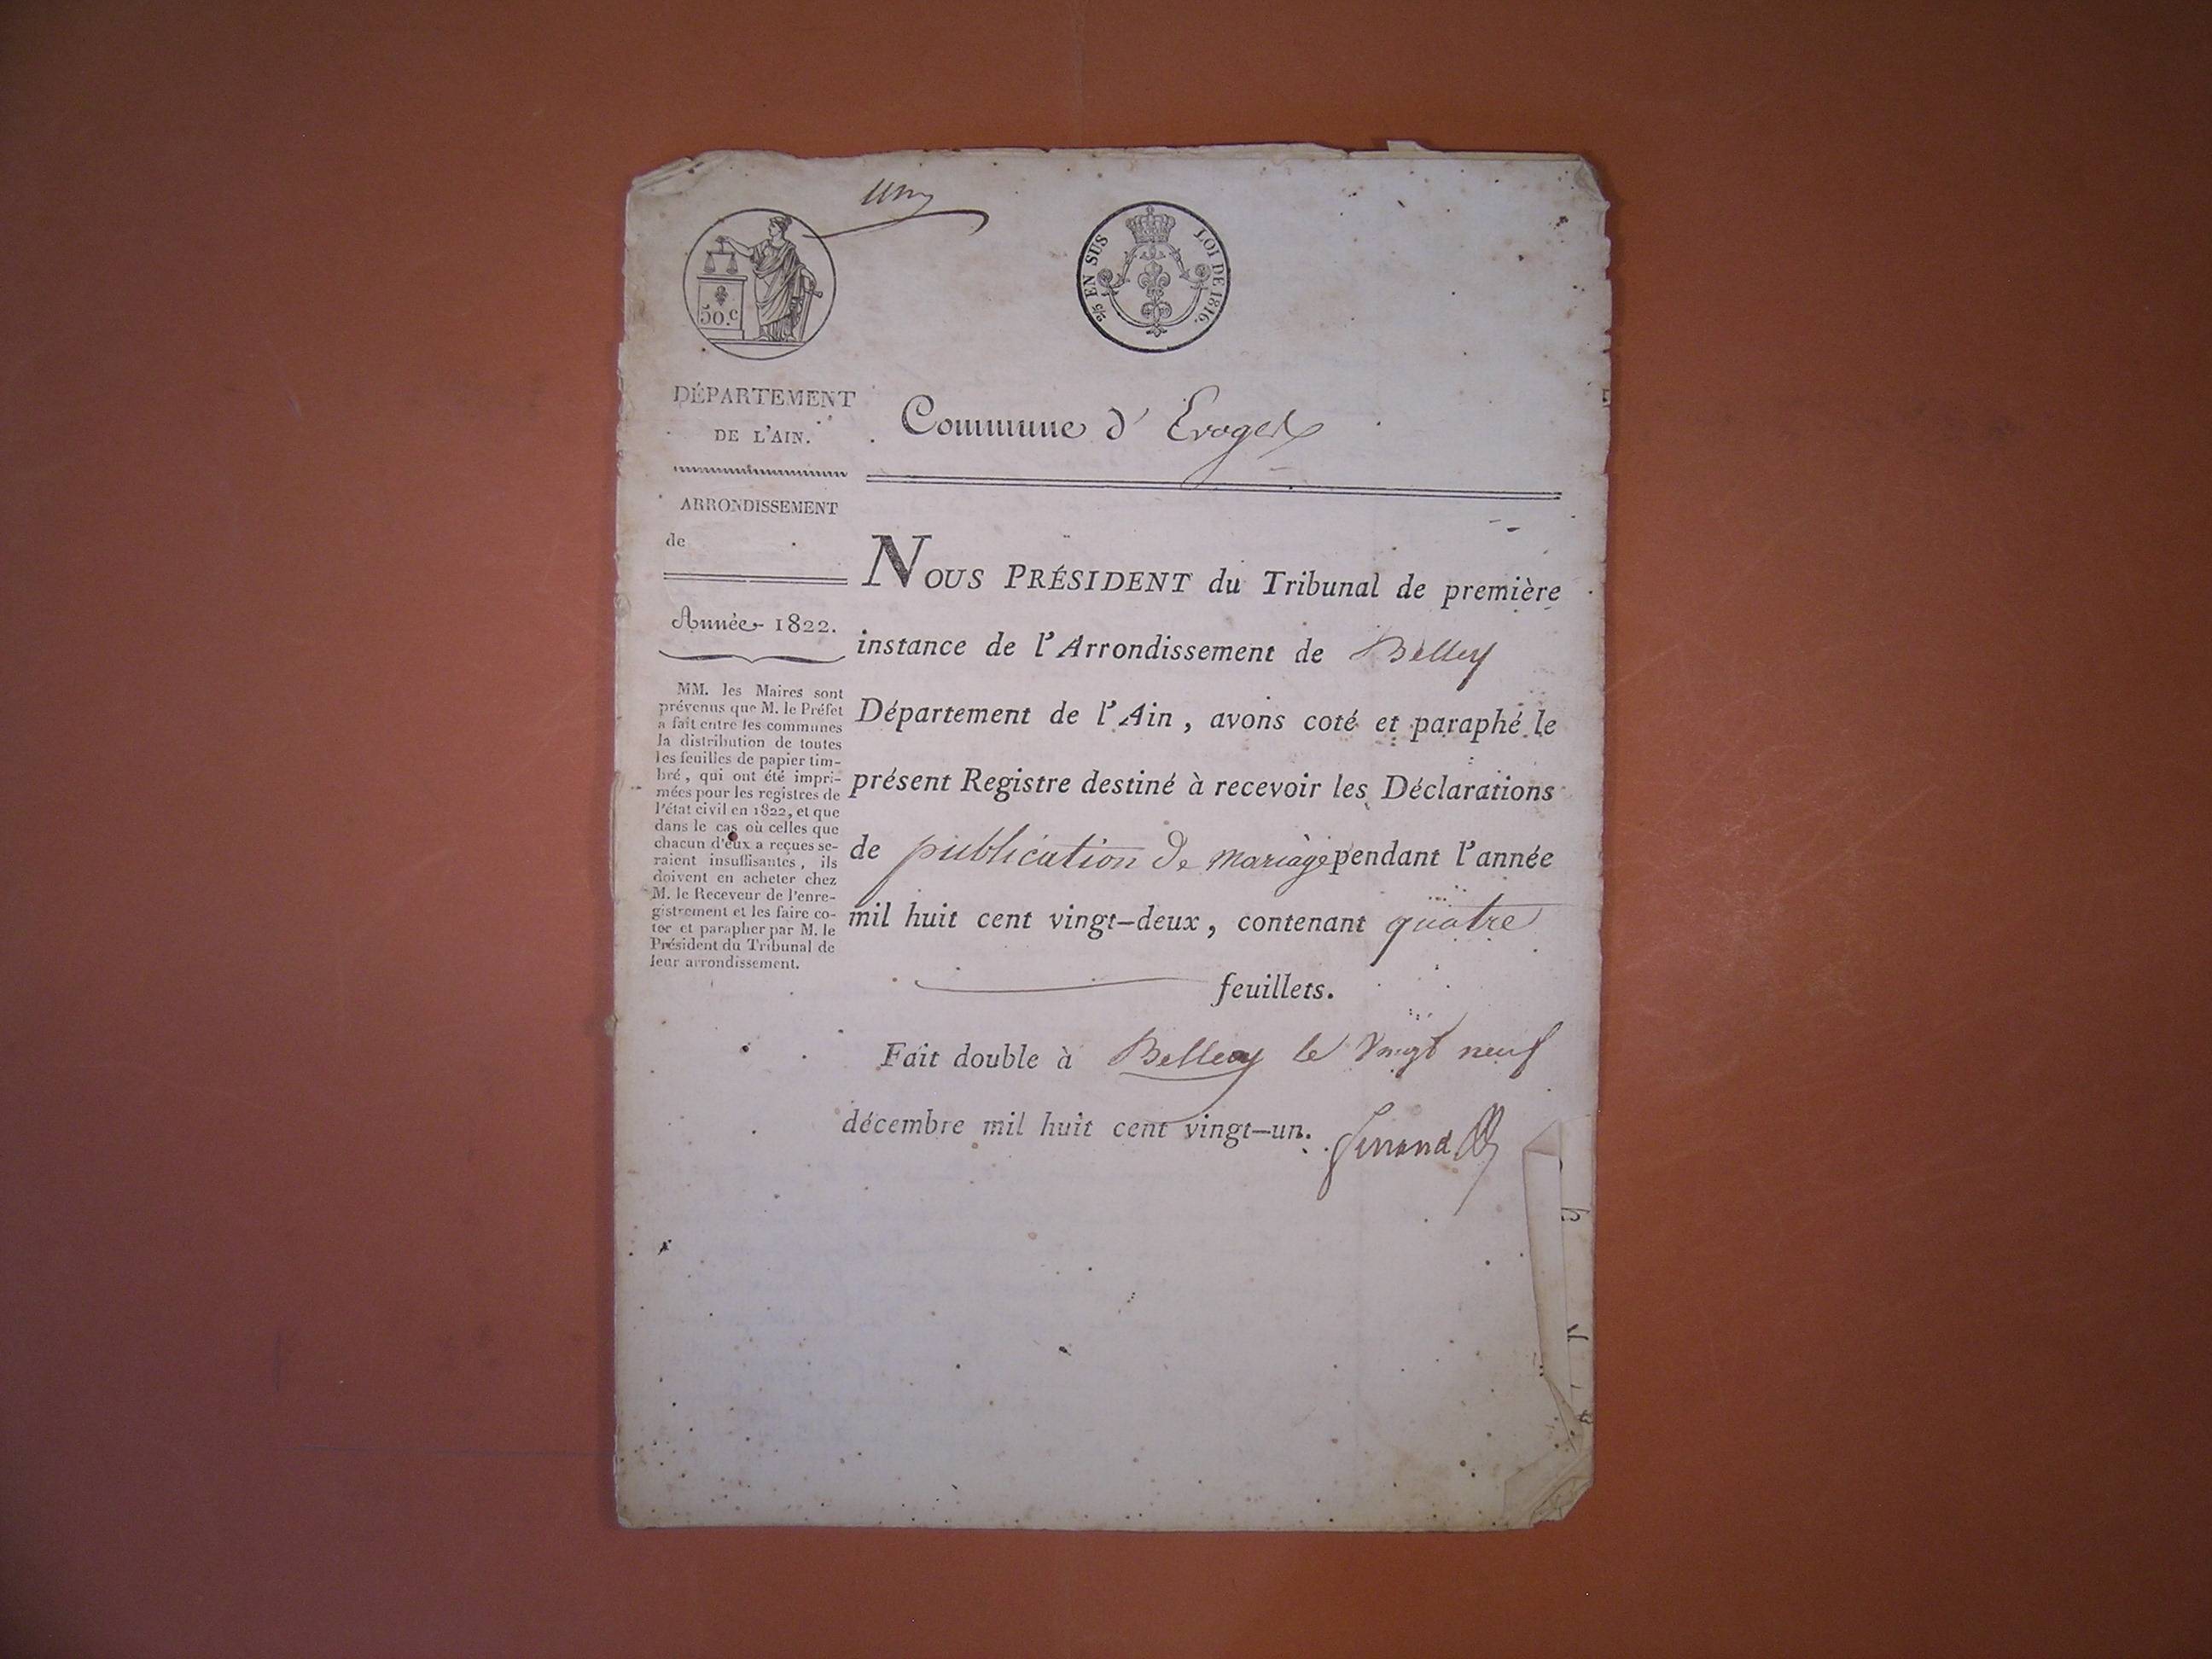 un
50.c
2/5 EN SUS LOI DE 1816.
DÉPARTEMENT
DE L'AIN.
Commune d' Evoges
ARRONDISSEMENT
de
Année 1822.
MM. les Maires sont
prévenus que M. le Préfet
a fait entre les communes
la distribution de toutes
les feuilles de papier tim-
bré, qui ont été impri-
mées pour les registres de
l'état civil en 1822, et que
dans le cas où celles que
chacun d'eux a reçues se-
raient insuffisantes, ils
doivent en acheter chez
M. le Receveur de l'enre-
gistrement et les faire co-
ter et parapher par M. le
Président du Tribunal de
leur arrondissement.
NOUS PRÉSIDENT du Tribunal de première
instance de l'Arrondissement de Belley
Département de l'Ain, avons coté et paraphé le
présent Registre destiné à recevoir les Déclarations
de publication de mariage pendant l'année
mil huit cent vingt-deux, contenant quatre
feuillets.
Fait double à Belley le vingt neuf
décembre mil huit cent vingt-un.